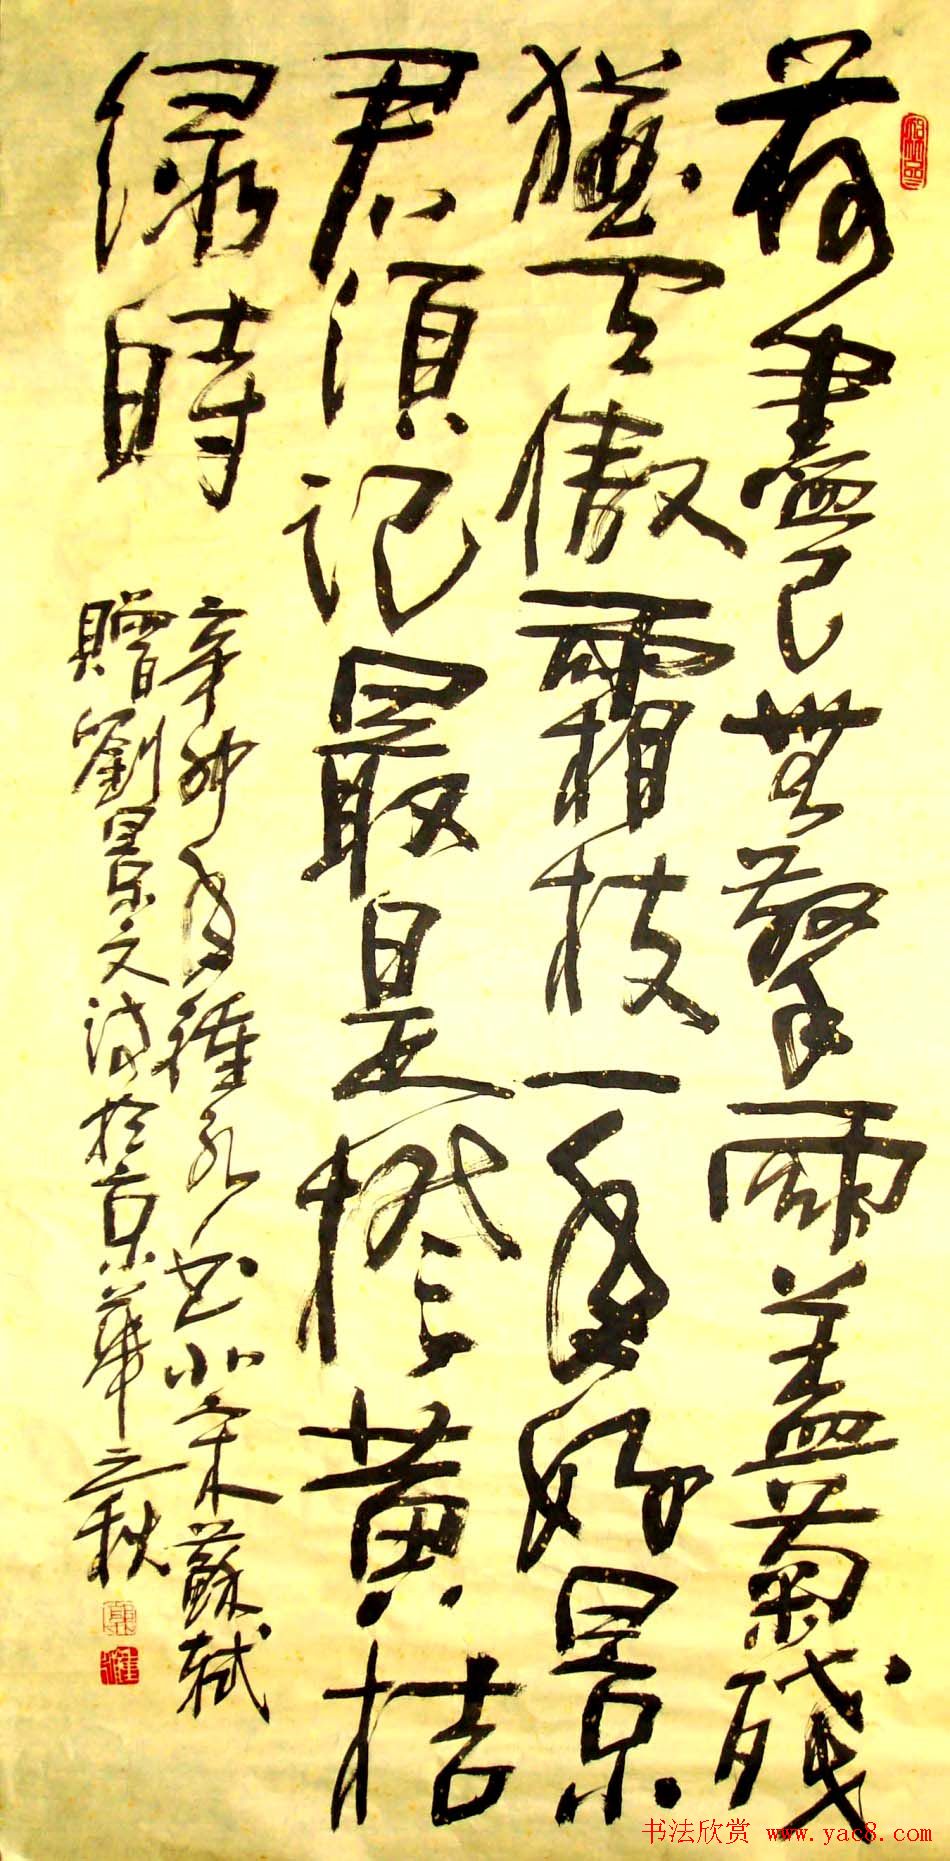 荷盡已無擎雨蓋菊殘
猶有傲霜枝一年好景
君須記最是橙黃桔
綠時
辛卯年書北宋蘇軾
贈劉景文詩於京華之秋
书法欣赏 www.yac8.com